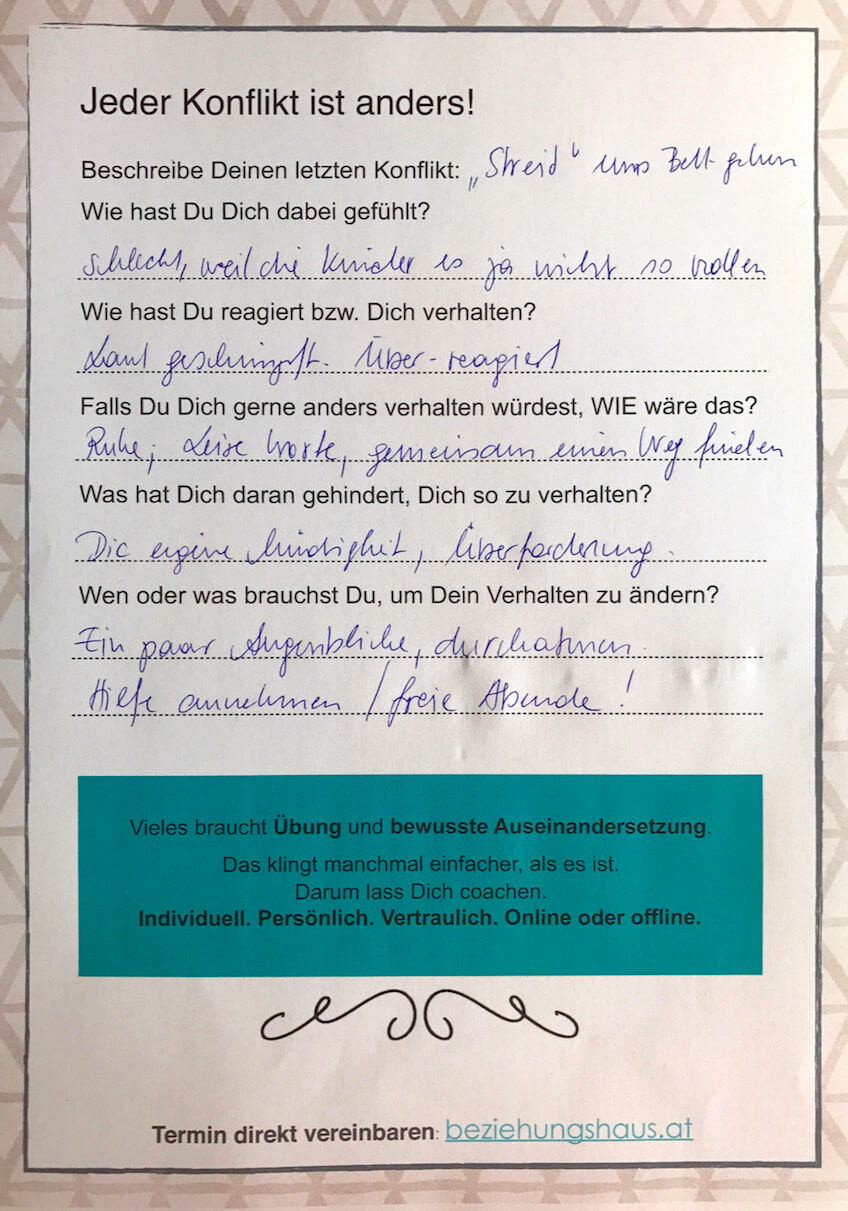 Jeder Konflikt ist anders!
Beschreibe Deinen letzten Konflikt: „Streid“ ums Bett gehen
Wie hast Du Dich dabei gefühlt?
Schlecht, weil die Kinder es ja nicht so wollen
Wie hast Du reagiert bzw. Dich verhalten?
Laut geschimpft. Über-reagiert
Falls Du Dich gerne anders verhalten würdest, WIE wäre das?
Ruhe, Leise Worte, gemeinsam einen Weg finden
Was hat Dich daran gehindert, Dich so zu verhalten?
Die eigene Müdigkeit, Überforderung.
Wen oder was brauchst Du, um Dein Verhalten zu ändern?
Ein paar Augenblicke, durchatmen.
Hilfe annehmen / freie Abende!
Vieles braucht Übung und bewusste Auseinandersetzung.
Das klingt manchmal einfacher, als es ist.
Darum lass Dich coachen.
Individuell. Persönlich. Vertraulich. Online oder offline.
Termin direkt vereinbaren: beziehungshaus.at